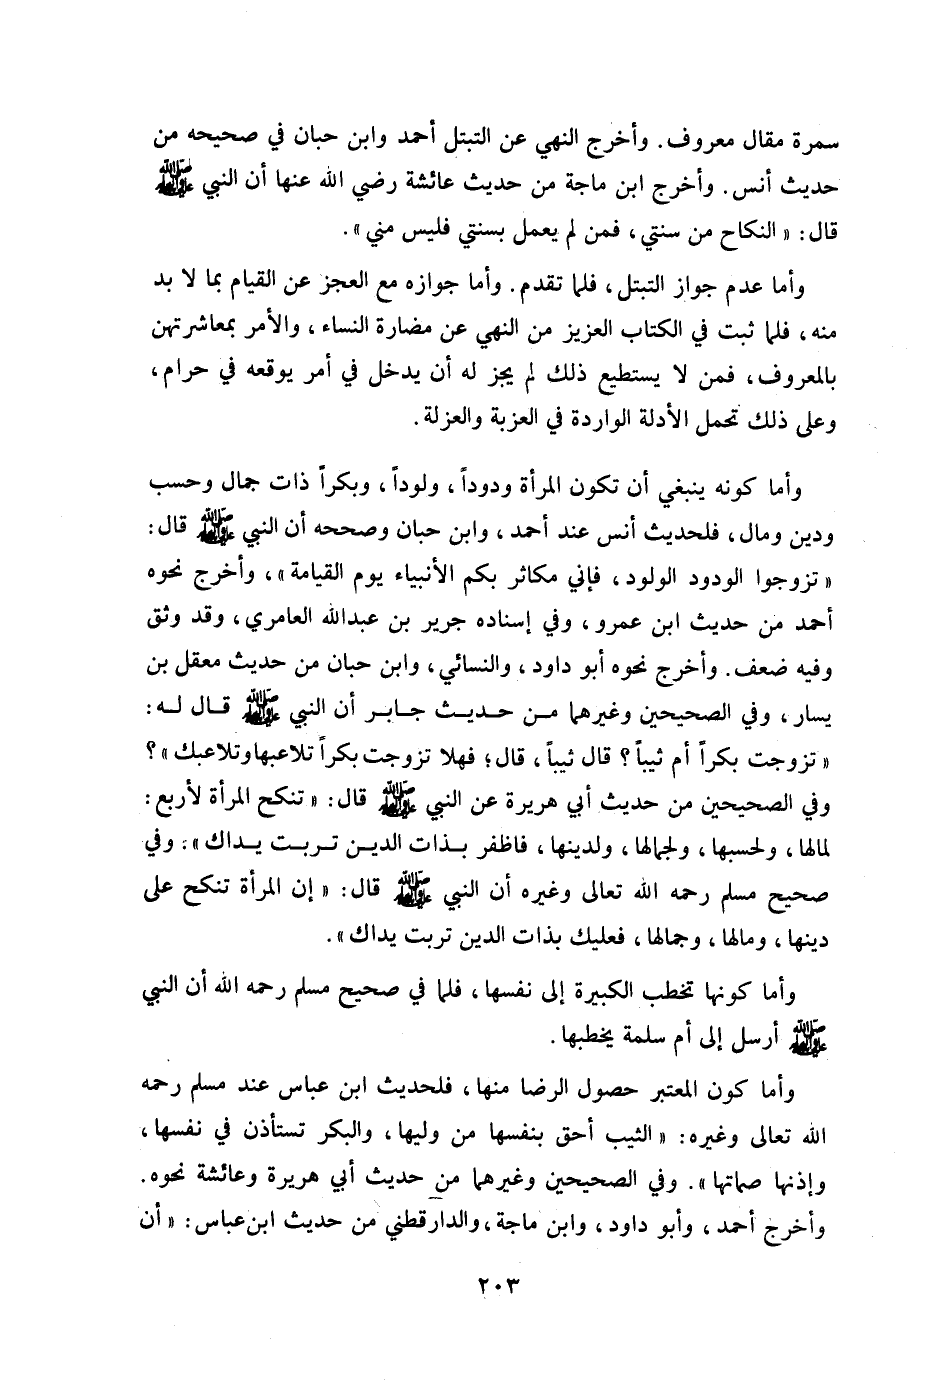 سمرة مقال معروف. وأخرج النهي عن التبتل أحمد وابن حبان في صحيحه من
حديث أنس. وأخرج ابن ماجة من حديث عائشة رضي الله عنها أن النبي ﷺ
قال: « النكاح من سنتي، فمن لم يعمل بسنتي فليس مني ».
وأما عدم جواز التبتل، فلما تقدم. وأما جوازه مع العجز عن القيام بما لا بد
منه، فلما ثبت في الكتاب العزيز من النهي عن مضارة النساء، والأمر بمعاشرتهن
بالمعروف، فمن لا يستطيع ذلك لم يجز له أن يدخل في أمر يوقعه في حرام،
وعلى ذلك تحمل الأدلة الواردة في العزبة والعزلة.
وأما كونه ينبغي أن تكون المرأة ودوداً، ولوداً، وبكراً ذات جمال وحسب
ودين ومال، فلحديث أنس عند أحمد، وابن حبان وصححه أن النبي ﷺ قال:
« تزوجوا الودود الولود، فإني مكاثر بكم الأنبياء يوم القيامة »، وأخرج نحوه
أحمد من حديث ابن عمرو، وفي إسناده جرير بن عبدالله العامري، وقد وثق
وفيه ضعف. وأخرج نحوه أبو داود، والنسائي، وابن حبان من حديث معقل بن
يسار، وفي الصحيحين وغيرهما من حديث جابر أن النبي ﷺ قال له:
« تزوجت بكراً أم ثيباً؟ قال ثيباً، قال؛ فهلا تزوجت بكراً تلاعبها وتلاعبك »؟
وفي الصحيحين من حديث أبي هريرة عن النبي ﷺ قال: « تنكح المرأة لأربع:
لمالها، ولحسبها، ولجمالها، ولدينها، فاظفر بذات الدين تربت يداك ». وفي
صحيح مسلم رحمه الله تعالى وغيره أن النبي ﷺ قال: « إن المرأة تنكح على
دينها، ومالها، وجمالها، فعليك بذات الدين تربت يداك ».
وأما كونها تخطب الكبيرة إلى نفسها، فلما في صحيح مسلم رحمه الله أن النبي
ﷺ أرسل إلى أم سلمة يخطبها.
وأما كون المعتبر حصول الرضا منها، فلحديث ابن عباس عند مسلم رحمه
الله تعالى وغيره: « الثيب أحق بنفسها من وليها، والبكر تستأذن في نفسها،
وإذنها صماتها ». وفي الصحيحين وغيرهما من حديث أبي هريرة وعائشة نحوه.
وأخرج أحمد، وأبو داود، وابن ماجة، والدارقطني من حديث ابن عباس: « أن
٢٠٣